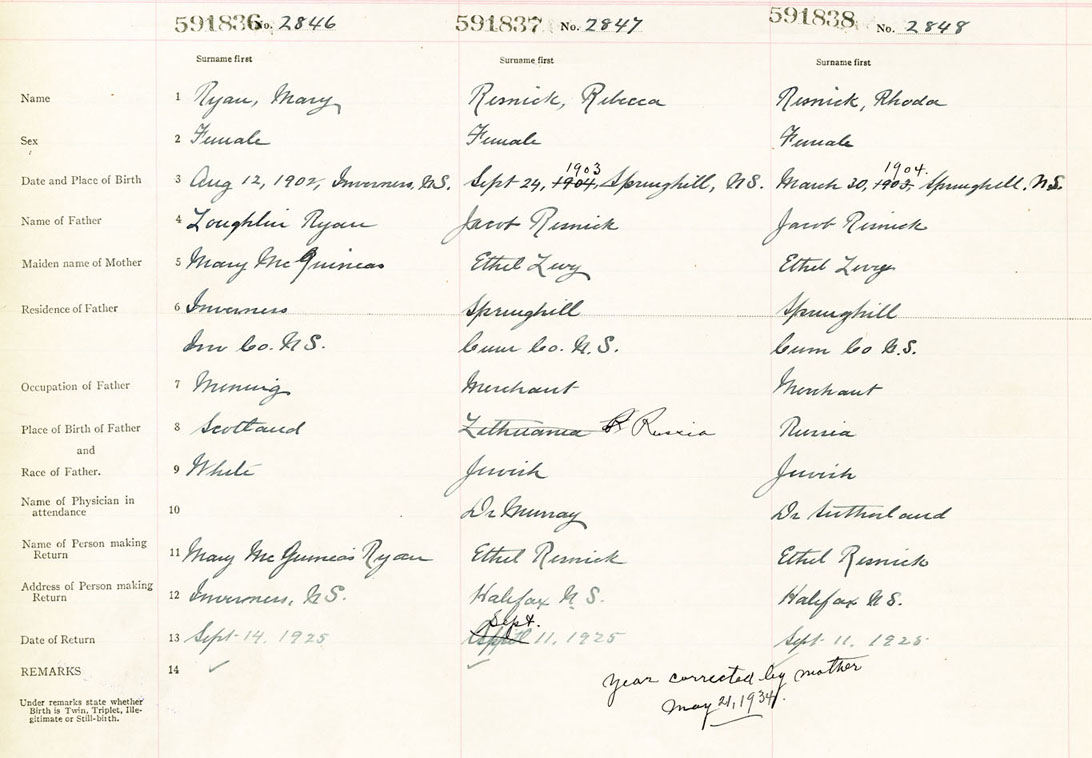 591836 No. 2846 591837 No. 2847 591838 No. 2848
Surname first Surname first Surname first
Name 1 Ryan, Mary Resnick, Rebecca Resnick, Rhoda
Sex 2 Female Female Female
1903 1904.
Date and Place of Birth 3 Aug 12, 1902, Inverness, N.S. Sept 24, 1904, Springhill, N.S. March 30, 1903, Springhill, N.S.
Name of Father 4 Loughlin Ryan Jacob Resnick Jacob Resnick
Maiden name of Mother 5 Mary McGuineas Ethel Levy Ethel Levy
Residence of Father 6 Inverness Springhill Springhill
Inv Co. N.S. Cum Co. N.S. Cum Co N.S.
Occupation of Father 7 Mining Merchant Merchant
Place of Birth of Father 8 Scotland Lithuania R Russia Russia
and
Race of Father. 9 White Jewish Jewish
Name of Physician in
attendance 10 Dr Murray Dr Sutherland
Name of Person making
Return 11 Mary McGuineas Ryan Ethel Resnick Ethel Resnick
Address of Person making
Return 12 Inverness, N.S. Halifax N.S. Halifax N.S.
Sept.
Date of Return 13 Sept 14, 1925 11, 1925 Sept 11, 1925
REMARKS 14
Year corrected by mother
May 21, 1934.
Under remarks state whether
Birth is Twin, Triplet, Ille-
gitimate or Still-birth.